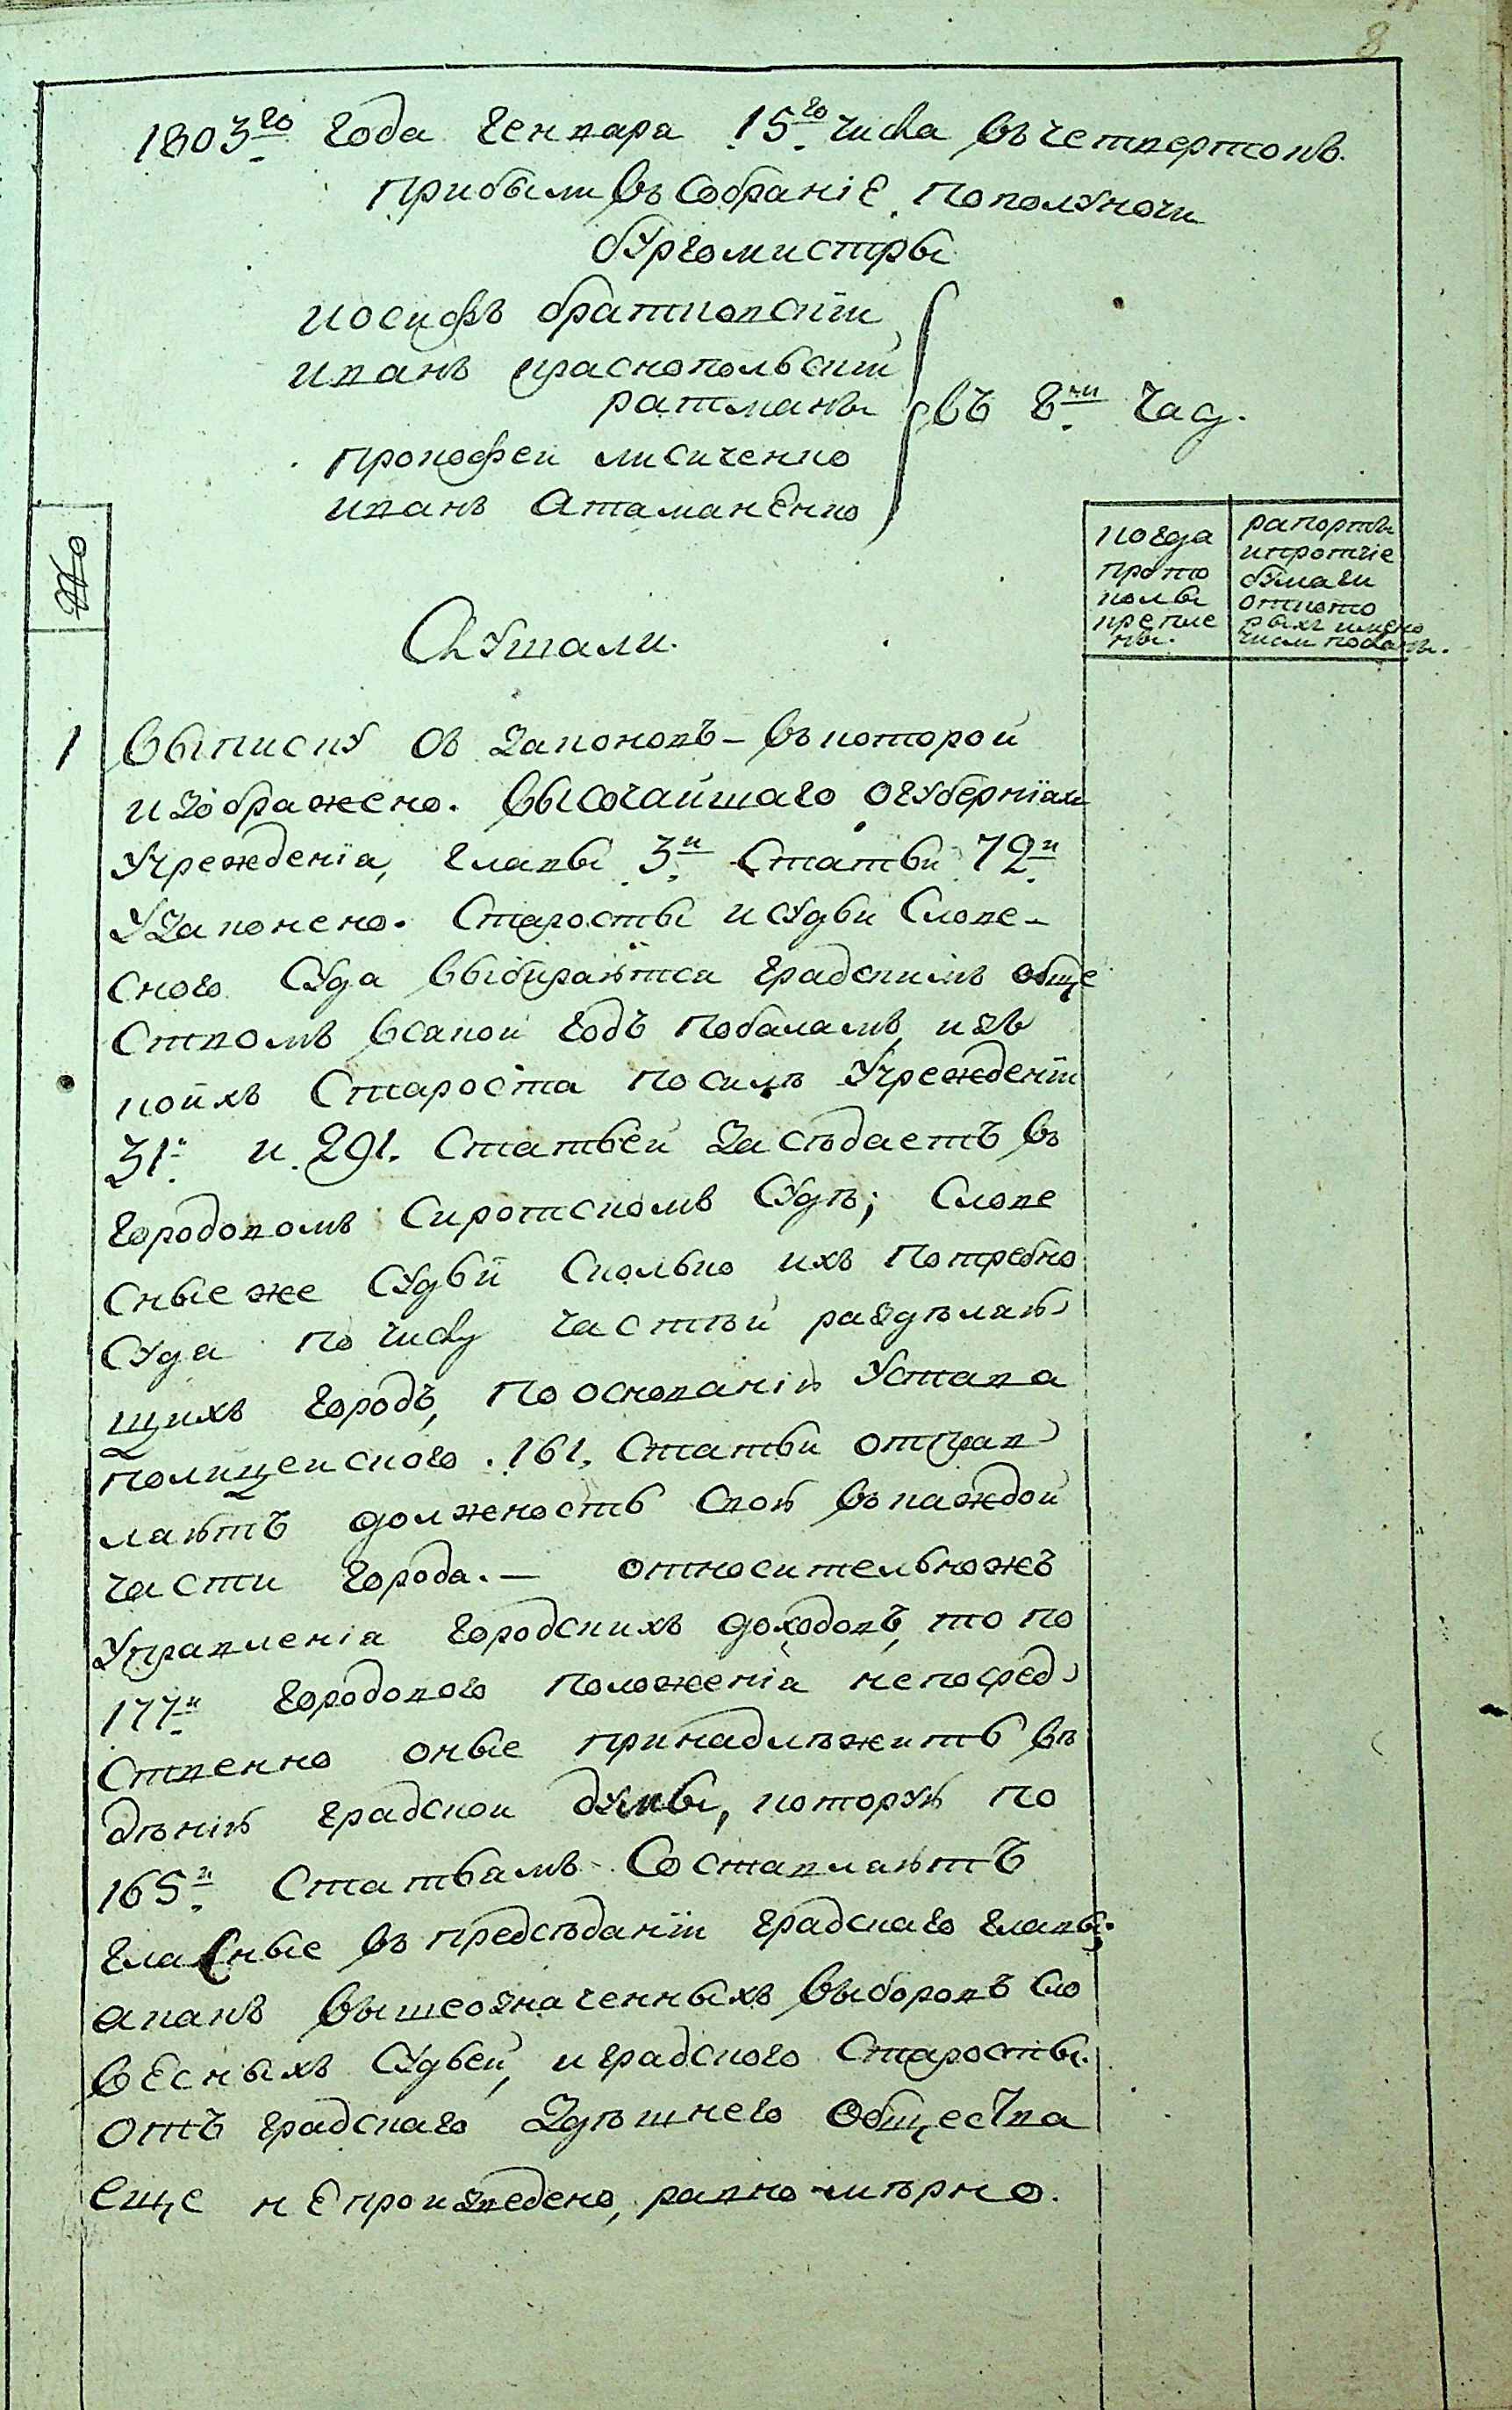 8
1803го года генваря 15го числа въ четвертокъ
прибыли въ собраніе пополуночи
бургомистры
иосифъ братковскій
иванъ краснопольскій
ратманы
прокофеи лисиченко
иванъ Атаманенко
въ 8ми часу.
№
когда
прото
колы
крепле
ны.
рапорты
и протчіе
бумаги
от кото
рыхъ имено
числи поданы.
Слушали.
1 выписку съ законовъ – въ которой
изображено. Высочайшаго о губерніях
Учрежденія, главы 3й Статьи 72й
Узаконено. Старосты и судьи Слове-
сного Суда выбираются градскимъ обще
Ством всякой годъ по баламъ, изъ
коихъ Староста по силѣ Учрежденій
31й и 291. Статьей засѣдаетъ въ
городовомъ Сиротскомъ Судѣ; Слове
сные же Судьи сколько ихъ потребно
Суда по числу частей раздѣляю
щихъ городъ, по основанію Устава
полицейского 161. Статьи отправ
ляютъ должность свою въ каждой
части города. – относительножъ
Управленія городскихъ доходовъ, то по
177й городового положенія непосред
Ственно оные принадлѣжитъ вѣ
дѣнію градской думы, которую по
165й Статьямъ Составляютъ
гласные въ предсѣданіи градскаго главы,
а какъ вышеозначенныхъ выборовъ Сло
весныхъ Судьей, и градского Старосты
отъ градскаго здѣшнего Общества
еще не произведено, равномѣрно.